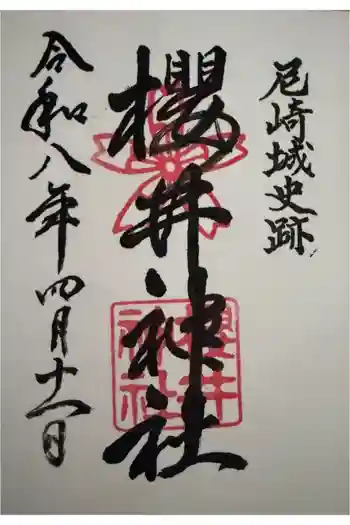 尼崎城史跡
櫻井神社
令和八年四月十一日
櫻井
神社